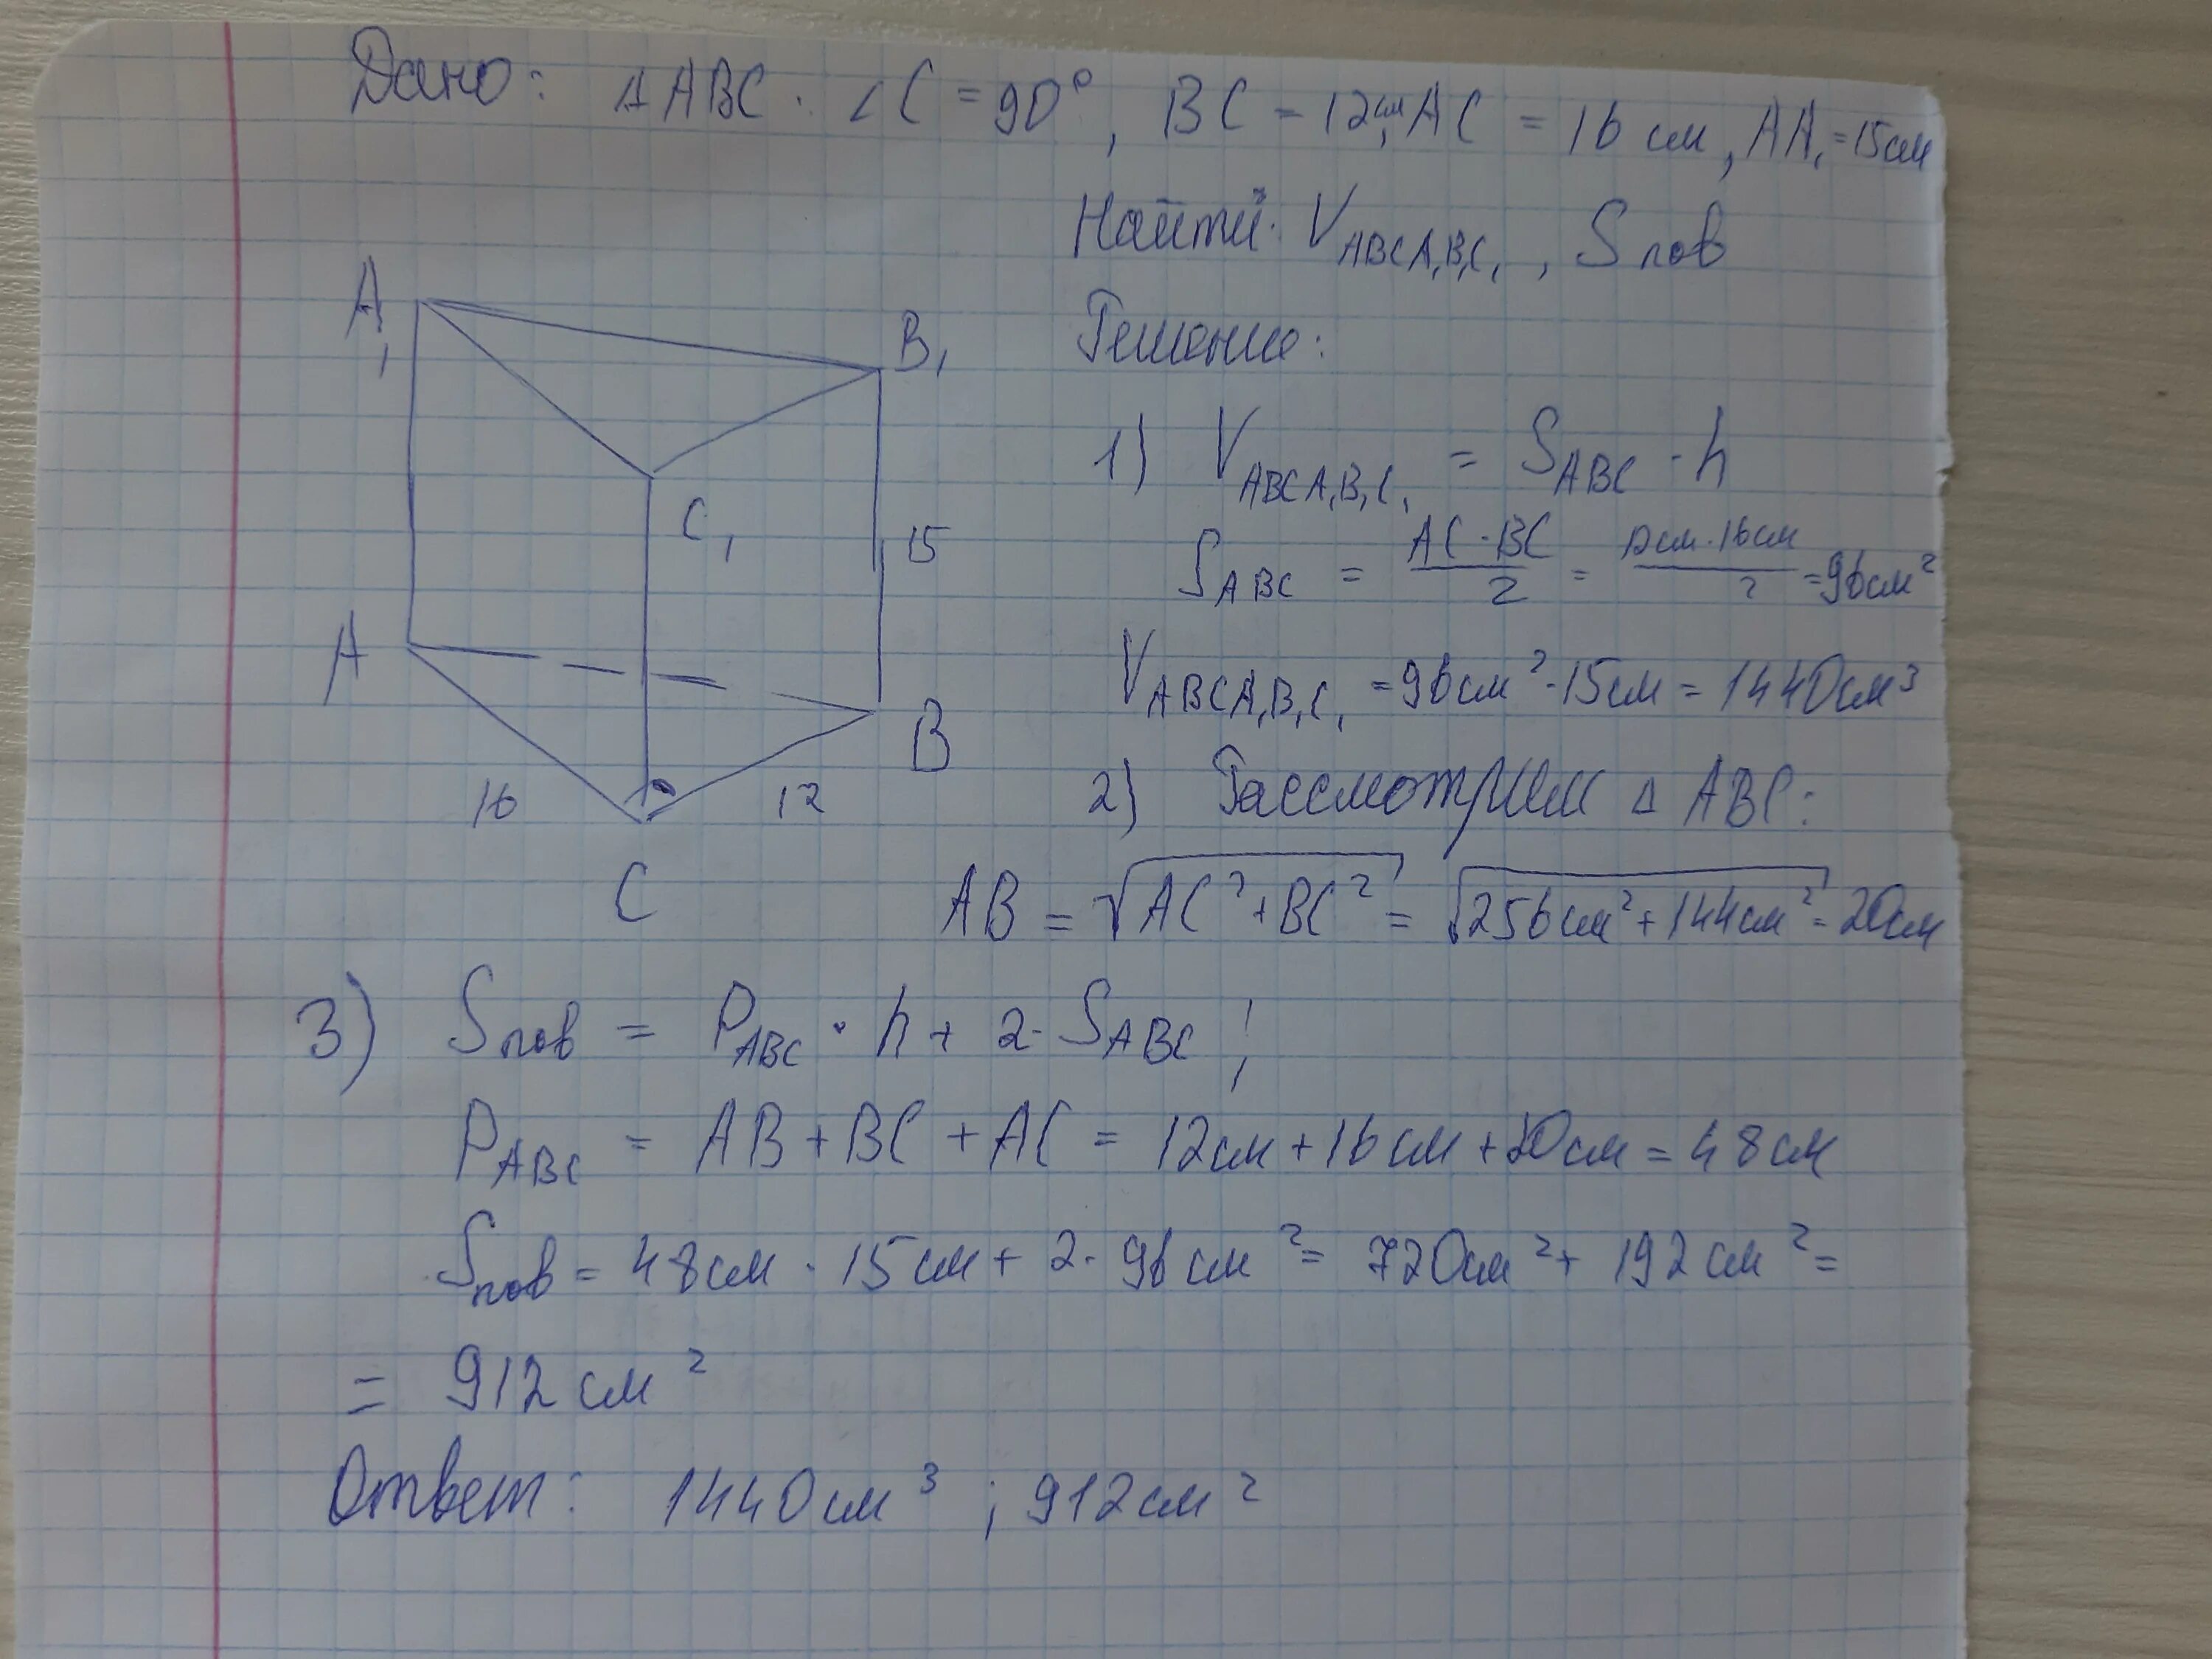 Дано: ΔABC. ∠C = 90°, BC = 12см, AC = 16 см, AA₁ = 15см
Найти: V ABCA₁B₁C₁, Sпов
Решение:
A₁
B₁
1) V ABCA₁B₁C₁ = S ABC · h
C₁
15
S ABC = AC · BC / 2 = 12см · 16см / 2 = 96см²
A
V ABCA₁B₁C₁ = 96см² · 15см = 1440см³
B
16
12
2) Рассмотрим Δ ABC:
C
AB = √AC² + BC² = √256см² + 144см² = 20см
3) Sпов = P ABC · h + 2 · S ABC;
P ABC = AB + BC + AC = 12см + 16см + 20см = 48см
Sпов = 48см · 15см + 2 · 96см² = 720см² + 192см² =
= 912см²
Ответ: 1440см³; 912см²